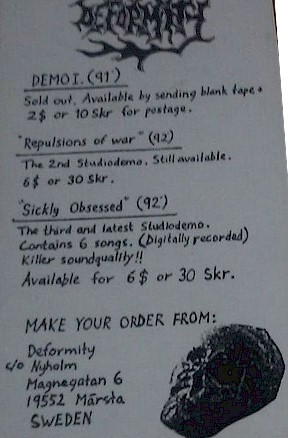 DEFORMITY
DEMO I. (91')
Sold out. Available by sending blank tape +
2$ or 10 Skr for postage.
"Repulsions of war" (92)
The 2nd Studiodemo. Still available.
6$ or 30 Skr.
"Sickly Obsessed" (92')
The third and latest Studiodemo.
Contains 6 songs. (Digitally recorded)
Killer soundquality!!
Available for 6$ or 30 Skr.
MAKE YOUR ORDER FROM:
Deformity
c/o Nyholm
Magnegatan 6
19552 Märsta
SWEDEN